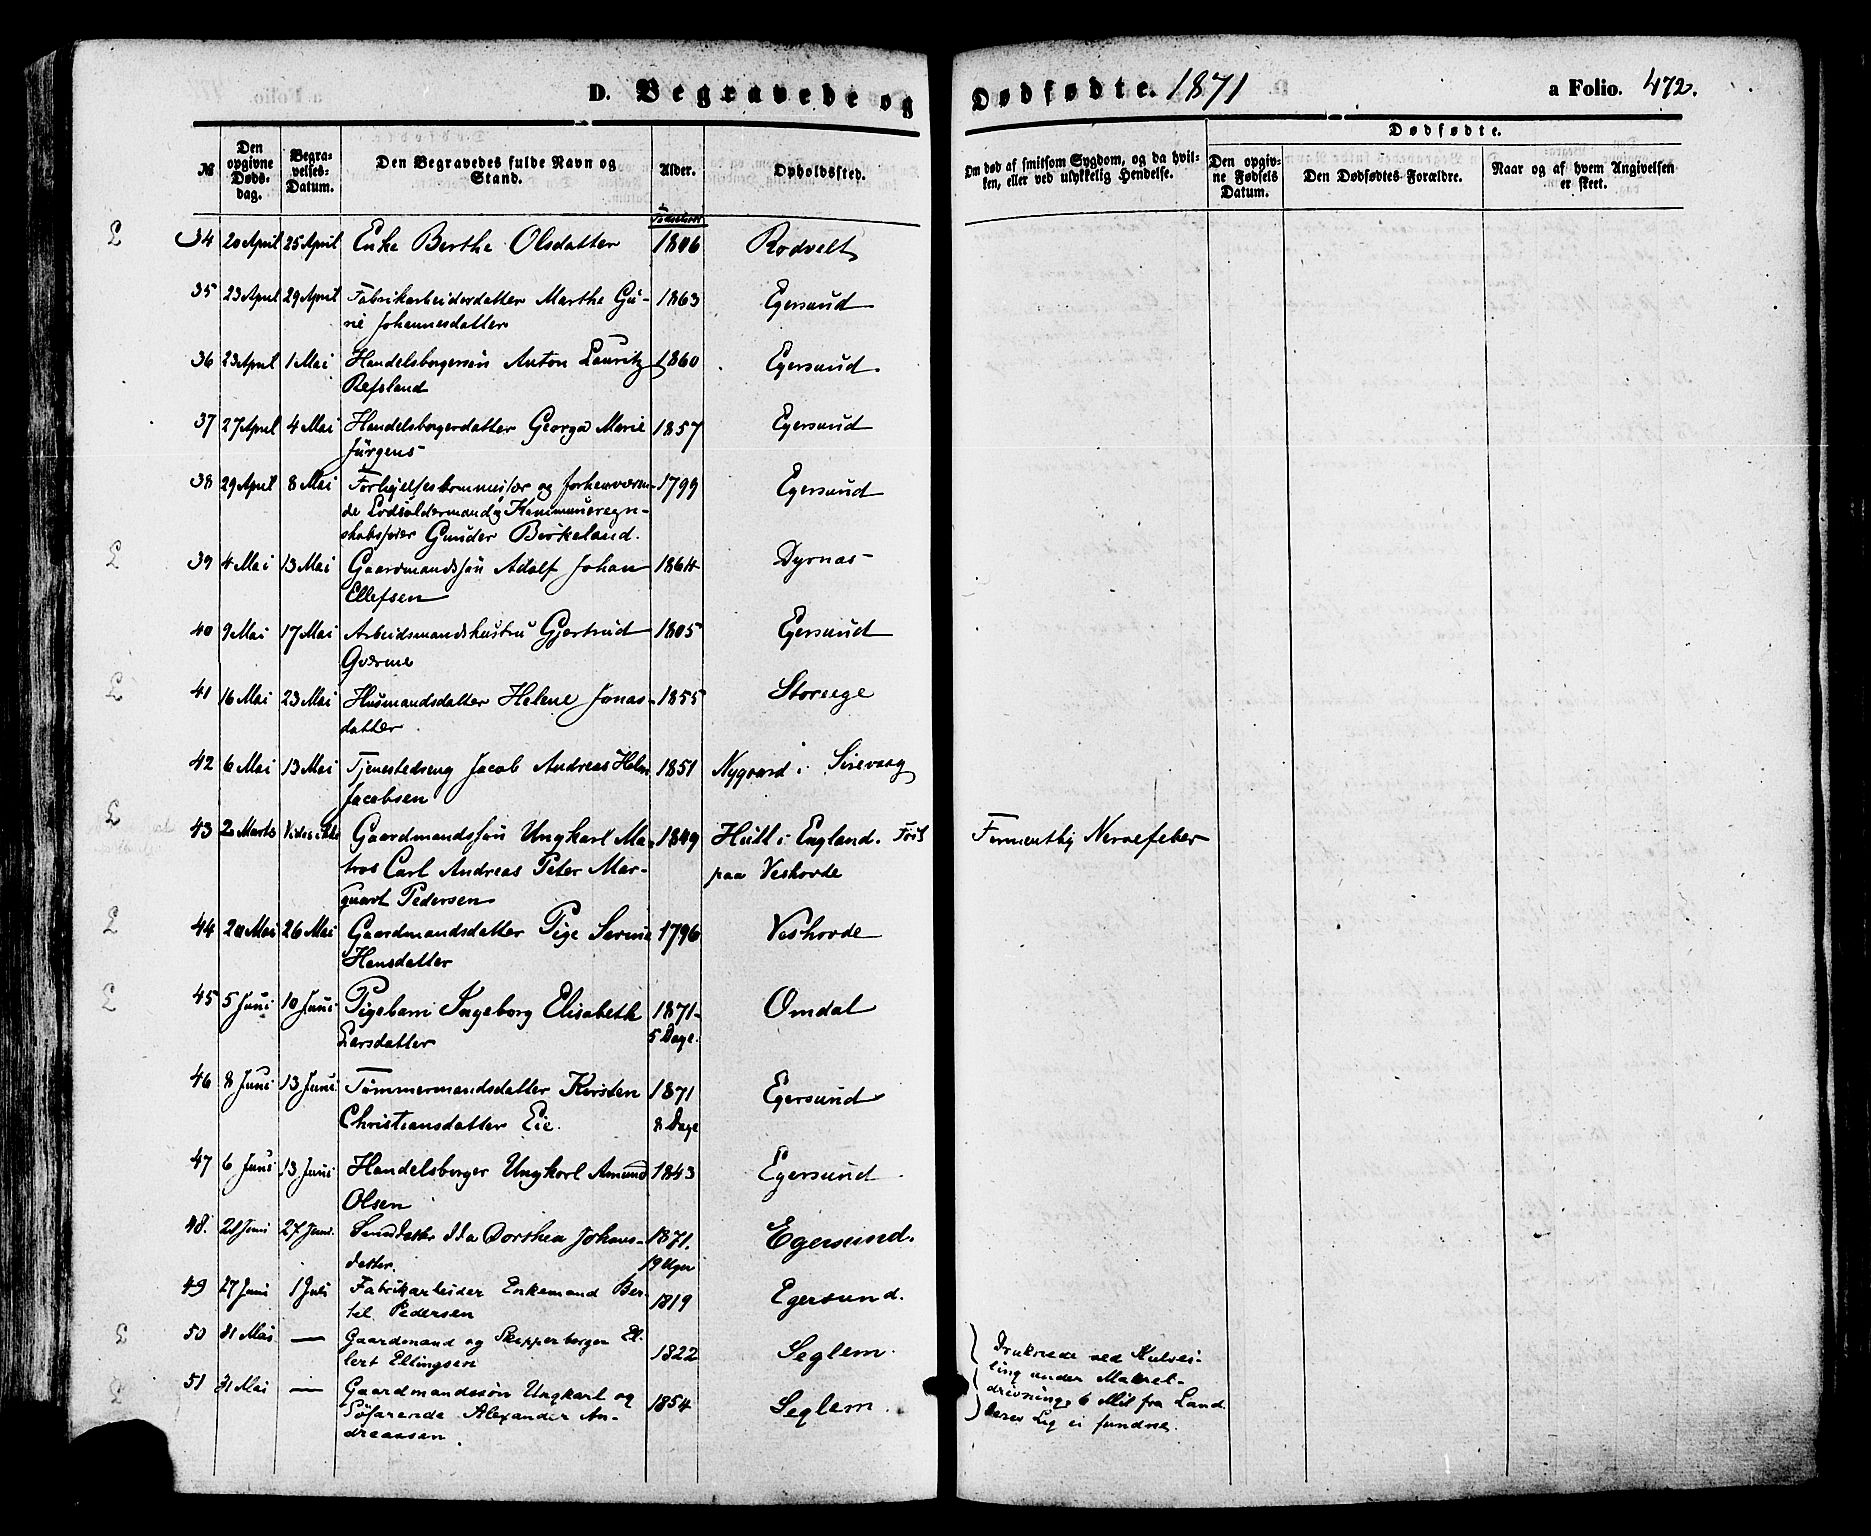 D. Begravede og Dødfødte. 1871 a Folio. 472.
№
Den opgivne Dødsdag.
Begravelses-Datum.
Den Begravedes fulde Navn og Stand.
Alder.
Opholdssted.
Om død af smitsom Sygdom, og da hvilken, eller ved ulykkelig Hendelse.
Dødfødte.
Den opgivne Fødsels Datum.
Den Dødfødtes Forældre.
Naar og af hvem Angivelsen er skeet.
34 20 April 25 April Enke Berthe Olsdatter 1806 Rodvelt
35 23 April 29 April Fabrikarbeiderdatter Marthe Gu- 1863 Egersund
rie Johannesdatter
36 23 April 1 Mai Handelsborgersøn Anton Lauritz 1860 Egersund.
Refsland
37 27 April 4 Mai Handelsborgerdatter Georga Marie 1857 Egersund
Jürgens
38 29 April 8 Mai Forligelseskommissær og forhenværen- 1799 Egersund
de Lodsoldermand og Kommuneregn-
skabsfører Gunder Birkeland.
39 4 Mai 13 Mai Gaardmandssøn Adolf Johan 1864 Dyrnas
Ellefsen
40 9 Mai 17 Mai Arbeidsmandshustru Gjertrud 1805 Egersund
Qværme
41 16 Mai 23 Mai Husmandsdatter Helene Jonas- 1855 Storeege
datter.
42 6 Mai 13 Mai Tjenestedreng Jacob Andreas 1851 Nygaard i Sirevaag
Jacobsen
43 2 Marts Vides ikke Gaardmandssøn Ungkarl Ma- 1849 Hull i England. Født Nervefeber
tros Carl Andreas Peter Mar- paa Veshovde
quart Pedersen
44 20 Mai 26 Mai Gaardmandsdatter Pige Serine 1796 Veshovde
Hansdatter
45 5 Juni 10 Juni Pigebarn Ingeborg Elisabeth 1871- Omdal
Larsdatter 5 Dage.
46 8 Juni 13 Juni Tømmermandsdatter Kirsten 1871 Egersund
Christiansdatter Eie. 8 Dage
47 6 Juni 13 Juni Handelsborger Ungkarl Amund 1843 Egersund
Olsen
48. 21 Juni 27 Juni Ida Dorthea Johans- 1871. Egersund.
datter. 19 Uger
49 27 Juni 1 Juli Fabrikarbeider Enkemand Ber- 1819 Egersund.
tel Pedersen
50 31 Mai — Gaardmand og Skipperborger El- 1822 Seglem. Druknede ved Kulvei-
lert Ellingsen ling under Makrel-
51 31 Mai — Gaardmandssøn Ungkarl og 1854 Seglem. drivning, 6 Mil fra Land
Søfarende Alexander An- deres Lig ei fundne.
dreassen.